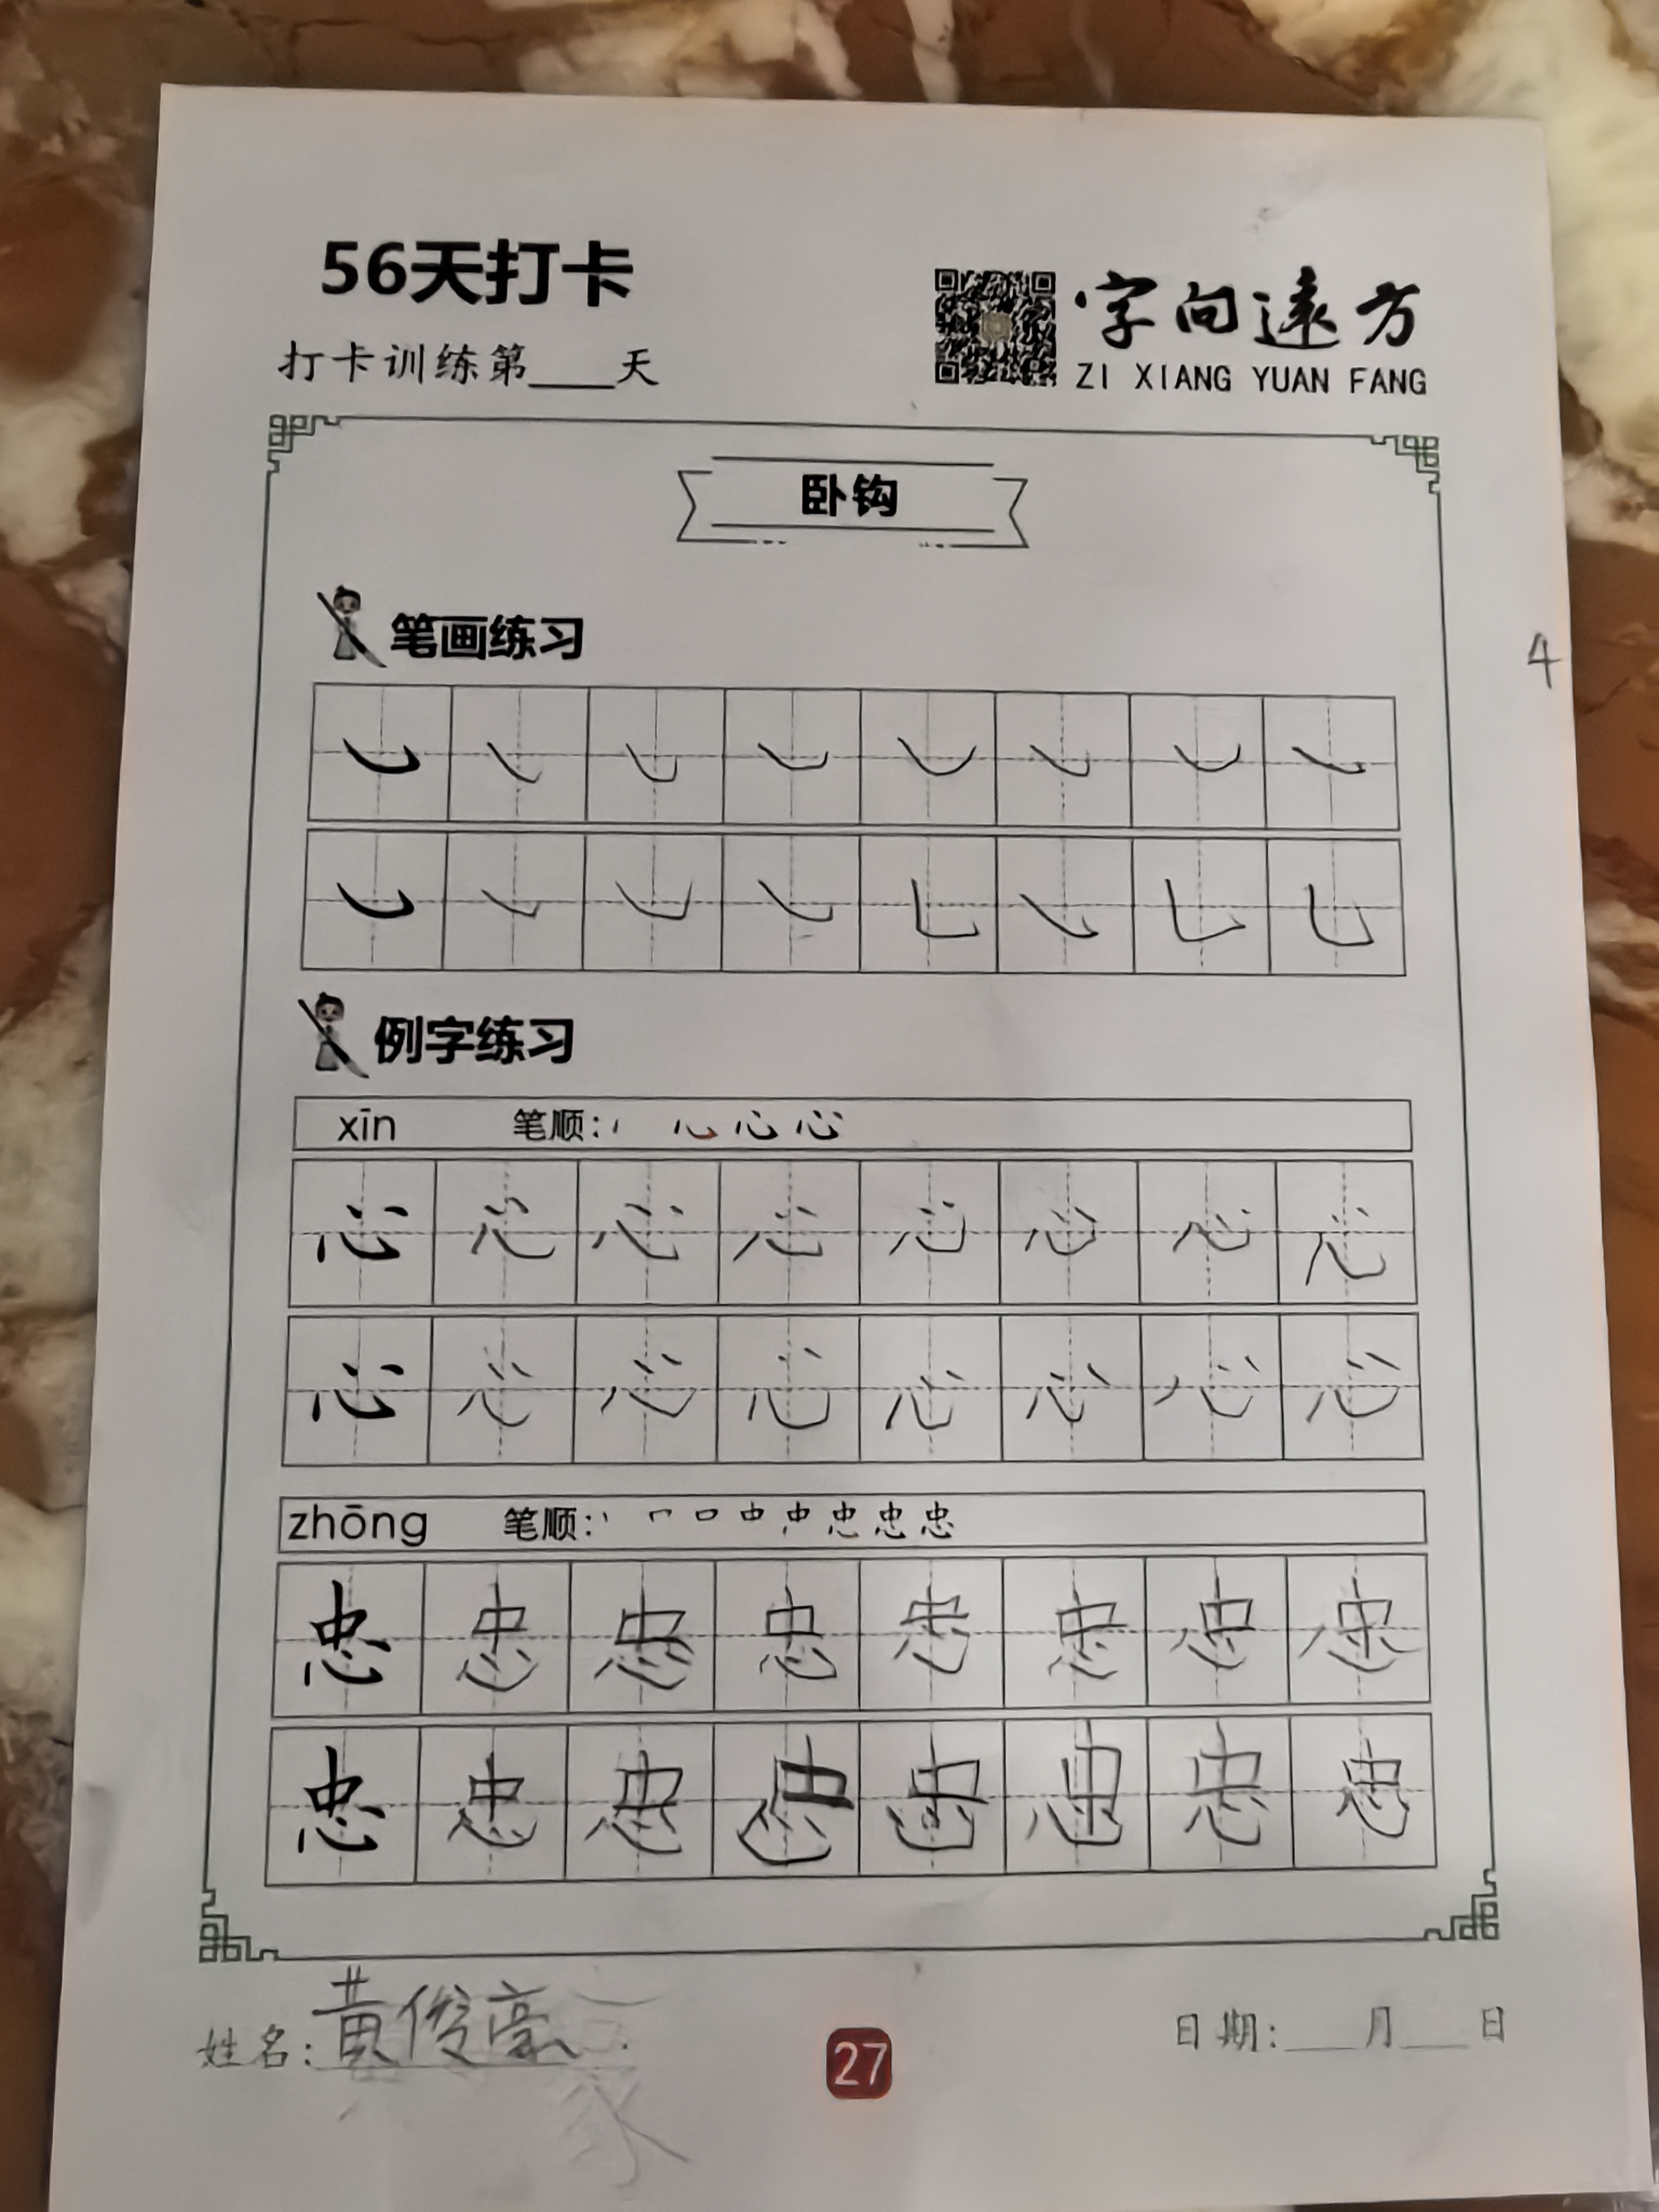 56天打卡
打卡训练第____天
字向遠方
ZI XIANG YUAN FANG
卧钩
笔画练习
4
例字练习
xīn 笔顺: 心 心
心 心 心 心 心 心 心 心
心 心 心 心 心 心 心 心
zhōng 笔顺: 丨 冖 口 中 中 忠 忠 忠
忠 忠 忠 忠 忠 忠 忠 忠
忠 忠 忠 忠 忠 忠 忠 忠
姓名: 黄俊豪
27
日期: ___月___日